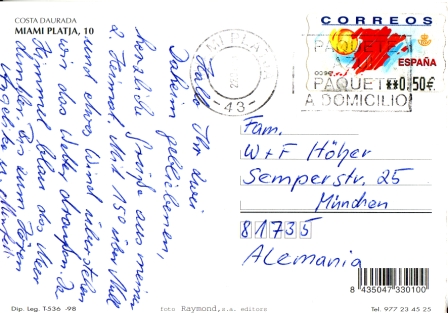 COSTA DAURADA
MIAMI PLATJA, 10
Hallo Ihr zwei
Daheim gebliebenen,
herzliche Grüße aus meiner
2. Heimat. Mit 150 über Null
und etwas Wind überstehen
wir das Wetter draußen. Da
Himmel blau das Meer
CORREOS
ESPAÑA
**0,50€
MIAMI PLATJA
-43-
PAQUETE
PAQUETE
A DOMICILIO
Fam.
W+F Hölzer
Semperstr. 25
München
81735
Alemania
8 435047 330100
Dip. Leg. T-536 -98
foto Raymond, s.a. editors
Tel. 977 23 45 25